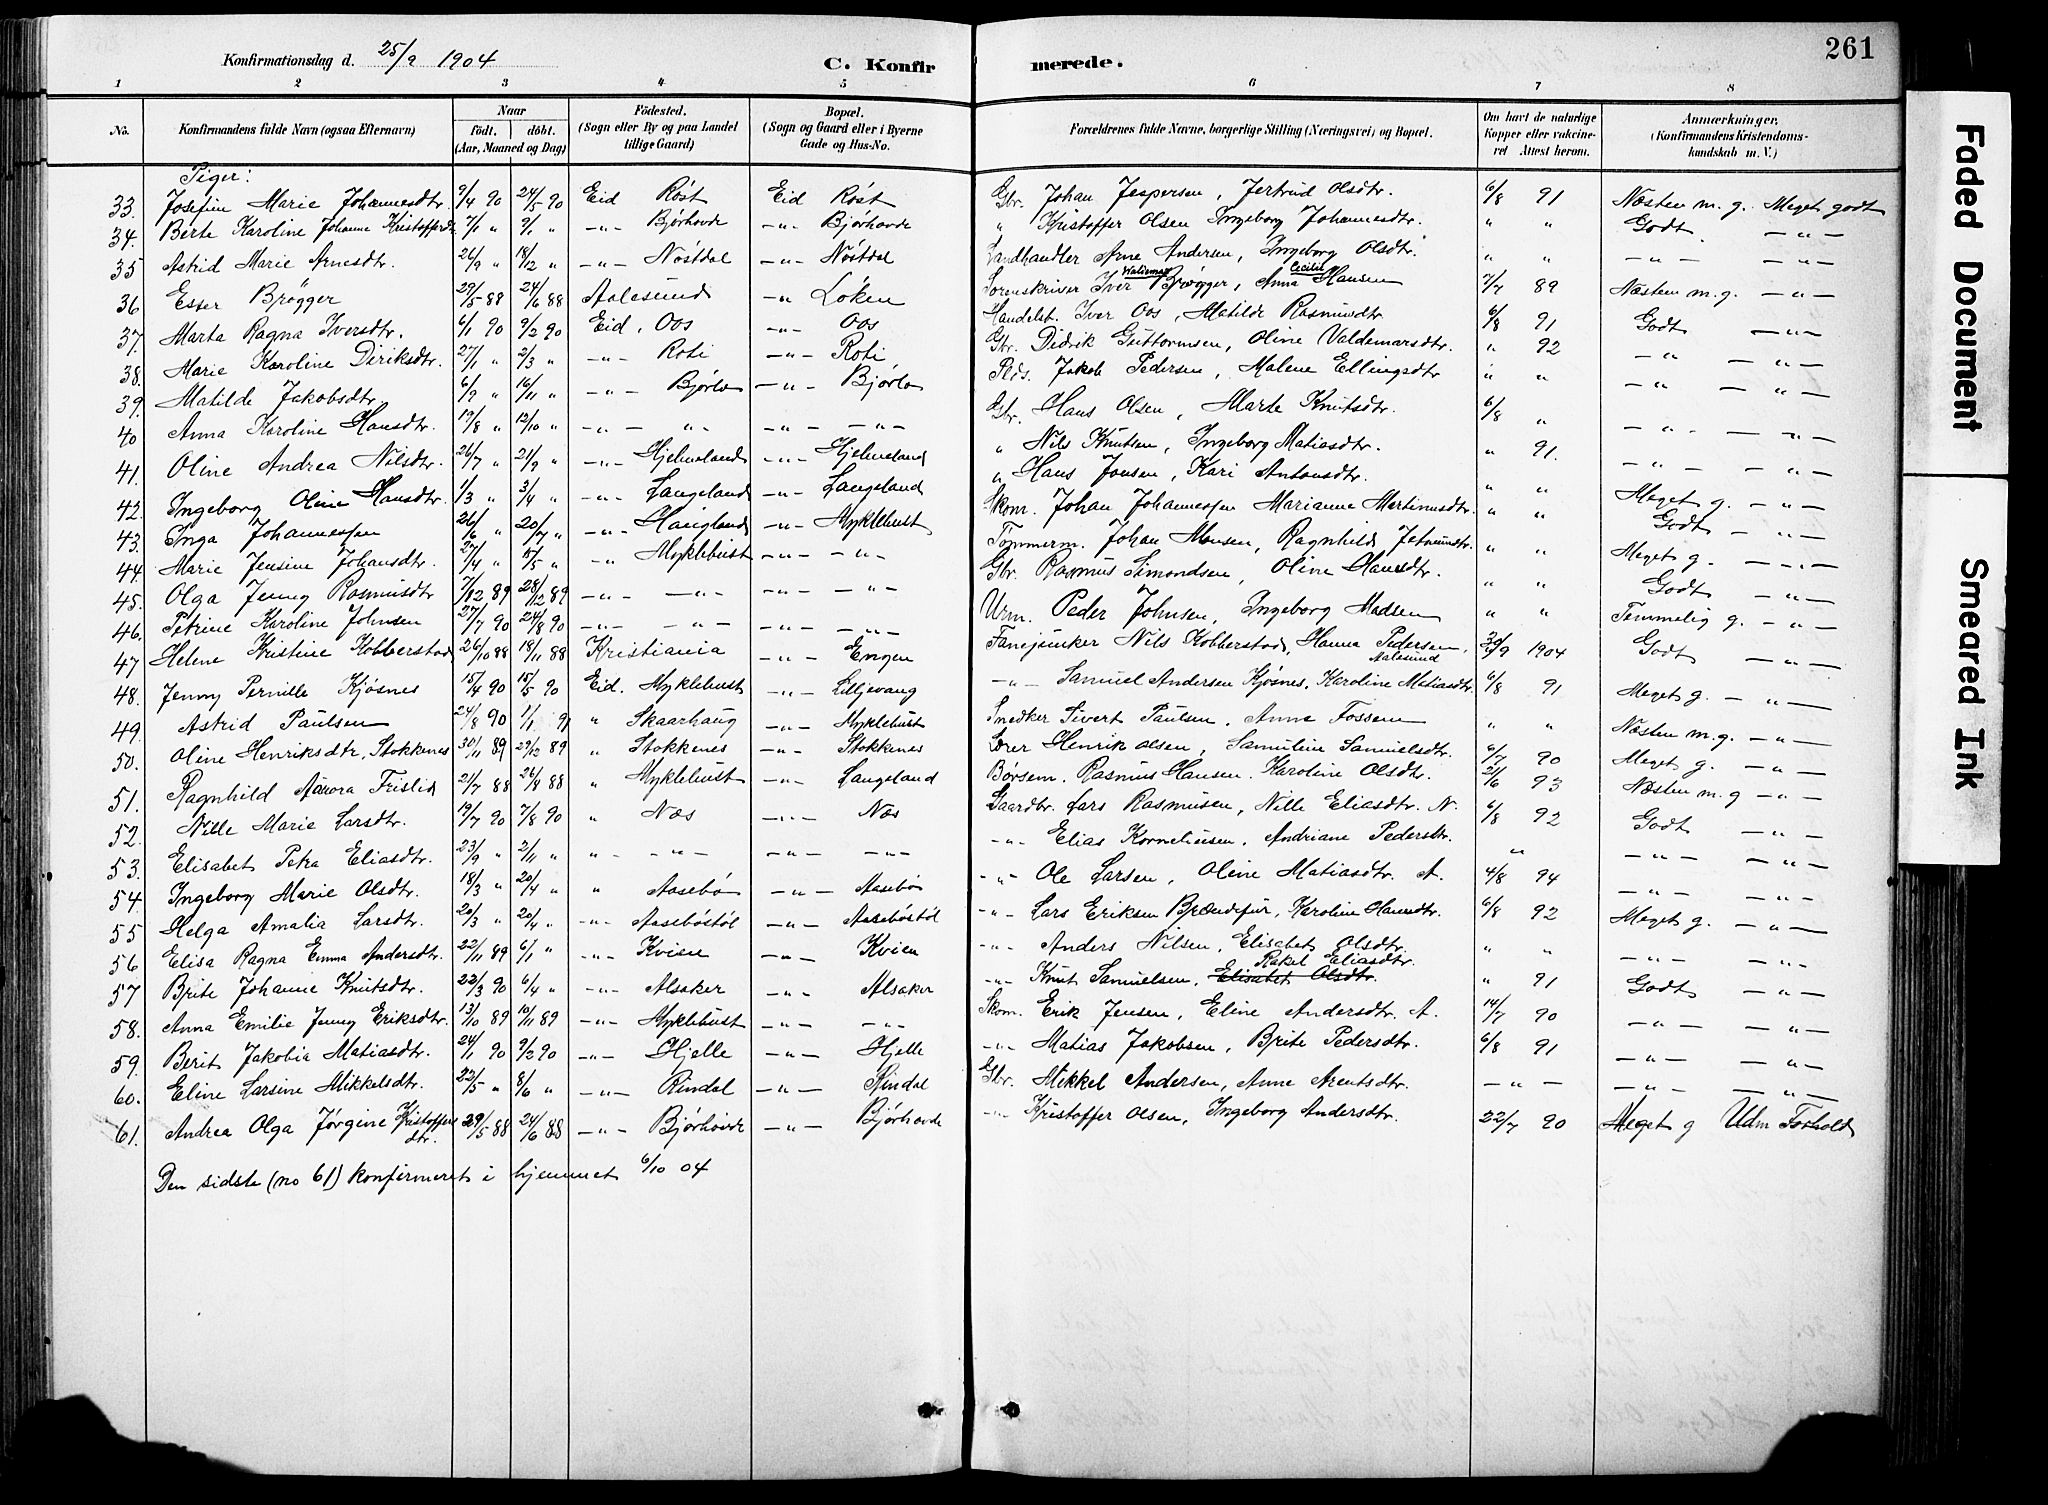 Konfirmationsdag d. 25/9 1904 C. Konfirmerede. 261
1 2 3 4 5 6 7 8
No. Konfirmandens fulde Navn (ogsaa Efternavn) Naar født. døbt. (Aar, Maaned og Dag) Fødested. (Sogn eller By og paa Landet tillige Gaard) Bopæl. (Sogn og Gaard eller i Byerne Gade og Hus-No. Forældrenes fulde Navne, borgerlige Stilling (Næringsvei) og Bopæl. Om havt de naturlige Kopper eller vaccineret Attest herom. Anmærkninger. (Konfirmandens Kristendomskundskab m. V.)
Piger:
33. Josefine Marie Johannesdtr. 9/4 90 24/5 90 Eid Røst Eid Røst Gbr. Johan Jespersen, Jertrud Olsdtr. 6/8 91 Næsten m. g. Meget godt
34. Berte Karoline Johanne Kristoffersdtr. 7/1 " 9/1 " -"- Bjørhovde -"- Bjørhovde " Kristoffer Olsen Ingeborg Johannesdtr. " " Godt -"-
35 Astrid Marie Arnesdtr. 26/9 " 18/12 " -"- Nøstdal -"- Nøstdal Landhandler Arne Andersen, Ingeborg Olsdtr. " " -"- -"-
36. Ester Brøgger 29/5 88 24/6 88 Aalesund -"- Løken Sorenskriver Iver Valdemar Brøgger, Anna Cecilie Hansen 7/7 89 Næsten m. g. -"-
37. Marta Ragna Iversdtr. 6/1 90 9/2 90 Eid, Oos -"- Oos Handelsb. Iver Oos, Matilde Rasmusdtr. 6/8 91 Godt -"-
38. Marie Karoline Diriksdtr. 27/1 " 2/3 " -"- Roti -"- Roti Gbr. Didrik Guttormsen, Oline Valdemarsdtr. " 92 -"- -"-
39. Matilde Jakobsdtr. 6/9 " 16/11 " -"- Bjørlo -"- Bjørlo Plds. Jakob Pedersen, Malene Ellingsdtr " " -"- -"-
40 Anna Karoline Hansdtr. 19/8 " 12/10 " -"- " -"- -"- Gbr. Hans Olsen, Marte Knutsdtr. 6/8 " -"- -"-
41. Oline Andrea Nilsdtr. 26/7 " 21/9 " -"- Hjelmeland -"- Hjelmeland " Nils Knutsen, Ingeborg Matiasdtr. " 91. -"- -"-
42. Ingeborg Oline Hansdtr. 1/3 " 3/4 " -"- Langeland -"- Langeland " Hans Jonsen, Kari Antonsdtr. " " Meget g. -"-
43. Inga Johannessen 26/6 " 20/7 " -"- Haugland -"- Myklebust Skom. Johan Johannessen Marianne Martinusdtr. " " Godt -"-
44. Marie Jensine Johansdtr. 27/4 " 15/5 " -"- Myklebust -"- -"- Tømmerm. Johan Monsen, Ragnhild Jetmundtr. " " Meget g. -"-
45. Olga Jenny Rasmusdtr 7/12 89 28/12 89 -"- -"- -"- -"- Gbr. Rasmus Simondsen, Oline Hansdtr. " " Godt -"-
46. Petrine Karoline Johnsen 27/7 90 24/8 90 -"- -"- -"- -"- Urm. Peder Johnsen, Ingeborg Madsen " " Temmelig g. -"-
47 Helene Kristine Kobberstad 26/10 88 18/11 88 Kristiania -"- Engen Fanejunker Nils Kobberstad, Hanna Pedersen, Aalesund 30/9 1904 Godt -"-
48. Jenny Pernille Kjøsnes 15/4 90 15/5 90 Eid. Myklebust -"- Lilljevang -"- Samuel Andersen Kjøsnes, Karoline Matiasdtr. 6/8 91 Meget g. -"-
49. Astrid Paulsen 24/8 90 1/1 91 " Skaarhaug -"- Myklebust Snedker Sivert Paulsen, Anne Fossen " " Næsten m. g. -"-
50. Oline Henriksdtr. Stokkenes 30/11 89 29/12 89 " Stokkenes -"- Stokkenes Lærer Henrik Olsen, Samuline Samuelsdtr. 6/7 90 Meget g. -"-
51. Ragnhild Aurora Frislid 21/7 88 26/8 88 " Myklebust -"- Langeland Børsem. Rasmus Hansen. Karoline Olsdtr. 21/6 93 Næsten m. g -"-
52. Nille Marie Larsdtr. 19/7 90 7/8 90 " Næs -"- Næs Gaardbr. Lars Rasmusen, Nille Eliasdtr. N. 6/8 92 Godt -"-
53. Elisabet Petra Eliasdtr. 23/9 " 2/11 " " -"- -"- -"- -"- Elias Korneliusen, Andriane Pedersdtr. " -"- -"-
54. Ingeborg Marie Olsdtr. 18/3 " 20/4 " " Aasebø -"- Aasebø -"- Ole Larsen, Oline Matiasdtr. A. 4/8 94 -"- -"-
55 Helga Amalia Larsdtr. 20/3 " 20/4 " -"- Aasebøstøl -"- Aasebøstøl -"- Lars Eriksen Brændefur, Karoline Hansdtr. 6/8 92 Meget g. -"-
56 Elisa Ragna Emma Andersdtr. 22/11 89 6/1 " -"- Kvien -"- Kvien -"- Anders Nilsen, Elisabet Olsdtr. " " -"- -"-
57 Brite Johanne Knutsdtr. 22/3 90 6/4 " -"- Alsaker -"- Alsaker -"- Knut Samuelsen, Elisabet Olsdtr. Rakel Eliasdtr. " 91 Godt -"-
58. Anna Emilie Jenny Eriksdtr. 13/10 89 10/11 89 -"- Myklebust -"- -"- Skom. Erik Jensen, Eline Andersdtr. A. 14/7 90 -"- -"-
59. Berit Jakobia Matiasdtr. 24/1 90 9/2 90 -"- Hjelle -"- Hjelle -"- Matias Jakobsen, Brite Pedersdtr. 6/8 91 -"- -"-
60. Eline Larsine Mikkelsdtr. 22/5 " 8/6 " -"- Rindal -"- Rindal Gbr. Mikkel Andersen, Anne Arentsdtr. -"- -"- -"-
61. Andrea Olga Jørgine Kristoffersdtr. 29/5 88 24/6 88 -"- Bjørhovde -"- Bjørhovde -"- Kristoffer Olsen, Ingeborg Andersdtr. 22/7 90 Meget g Udm Forhold
Den sidste (no 61) konfirmeret i hjemmet 6/10 04
Faded Document
Smeared Ink